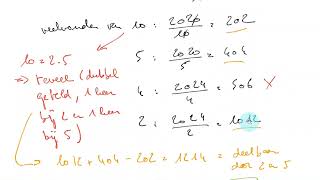 veelvouden van 10 : 2020/10 = 202
10 = 2.5
5 : 2020/5 = 404
→ teveel (dubbel geteld, 1 keer bij 2 en 1 keer bij 5)
4 : 2024/4 = 506 X
2 : 2024/2 = 1012
→ 1012 + 404 - 202 = 1214 = deelbaar door 2 en 5